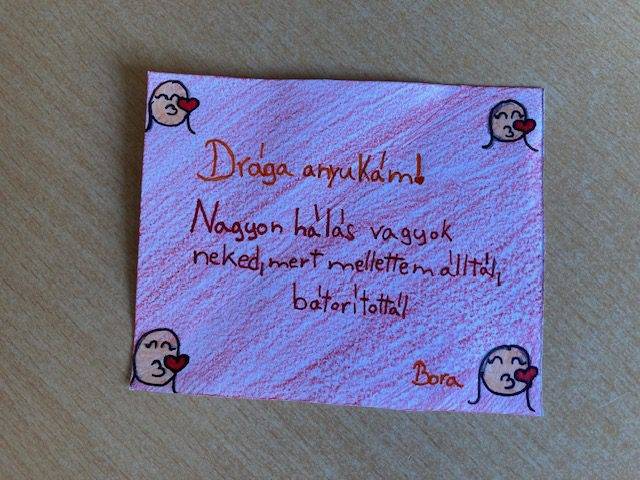 Drága anyukám!
Nagyon hálás vagyok
neked, mert mellettem álltál,
bátorítottál
Bora